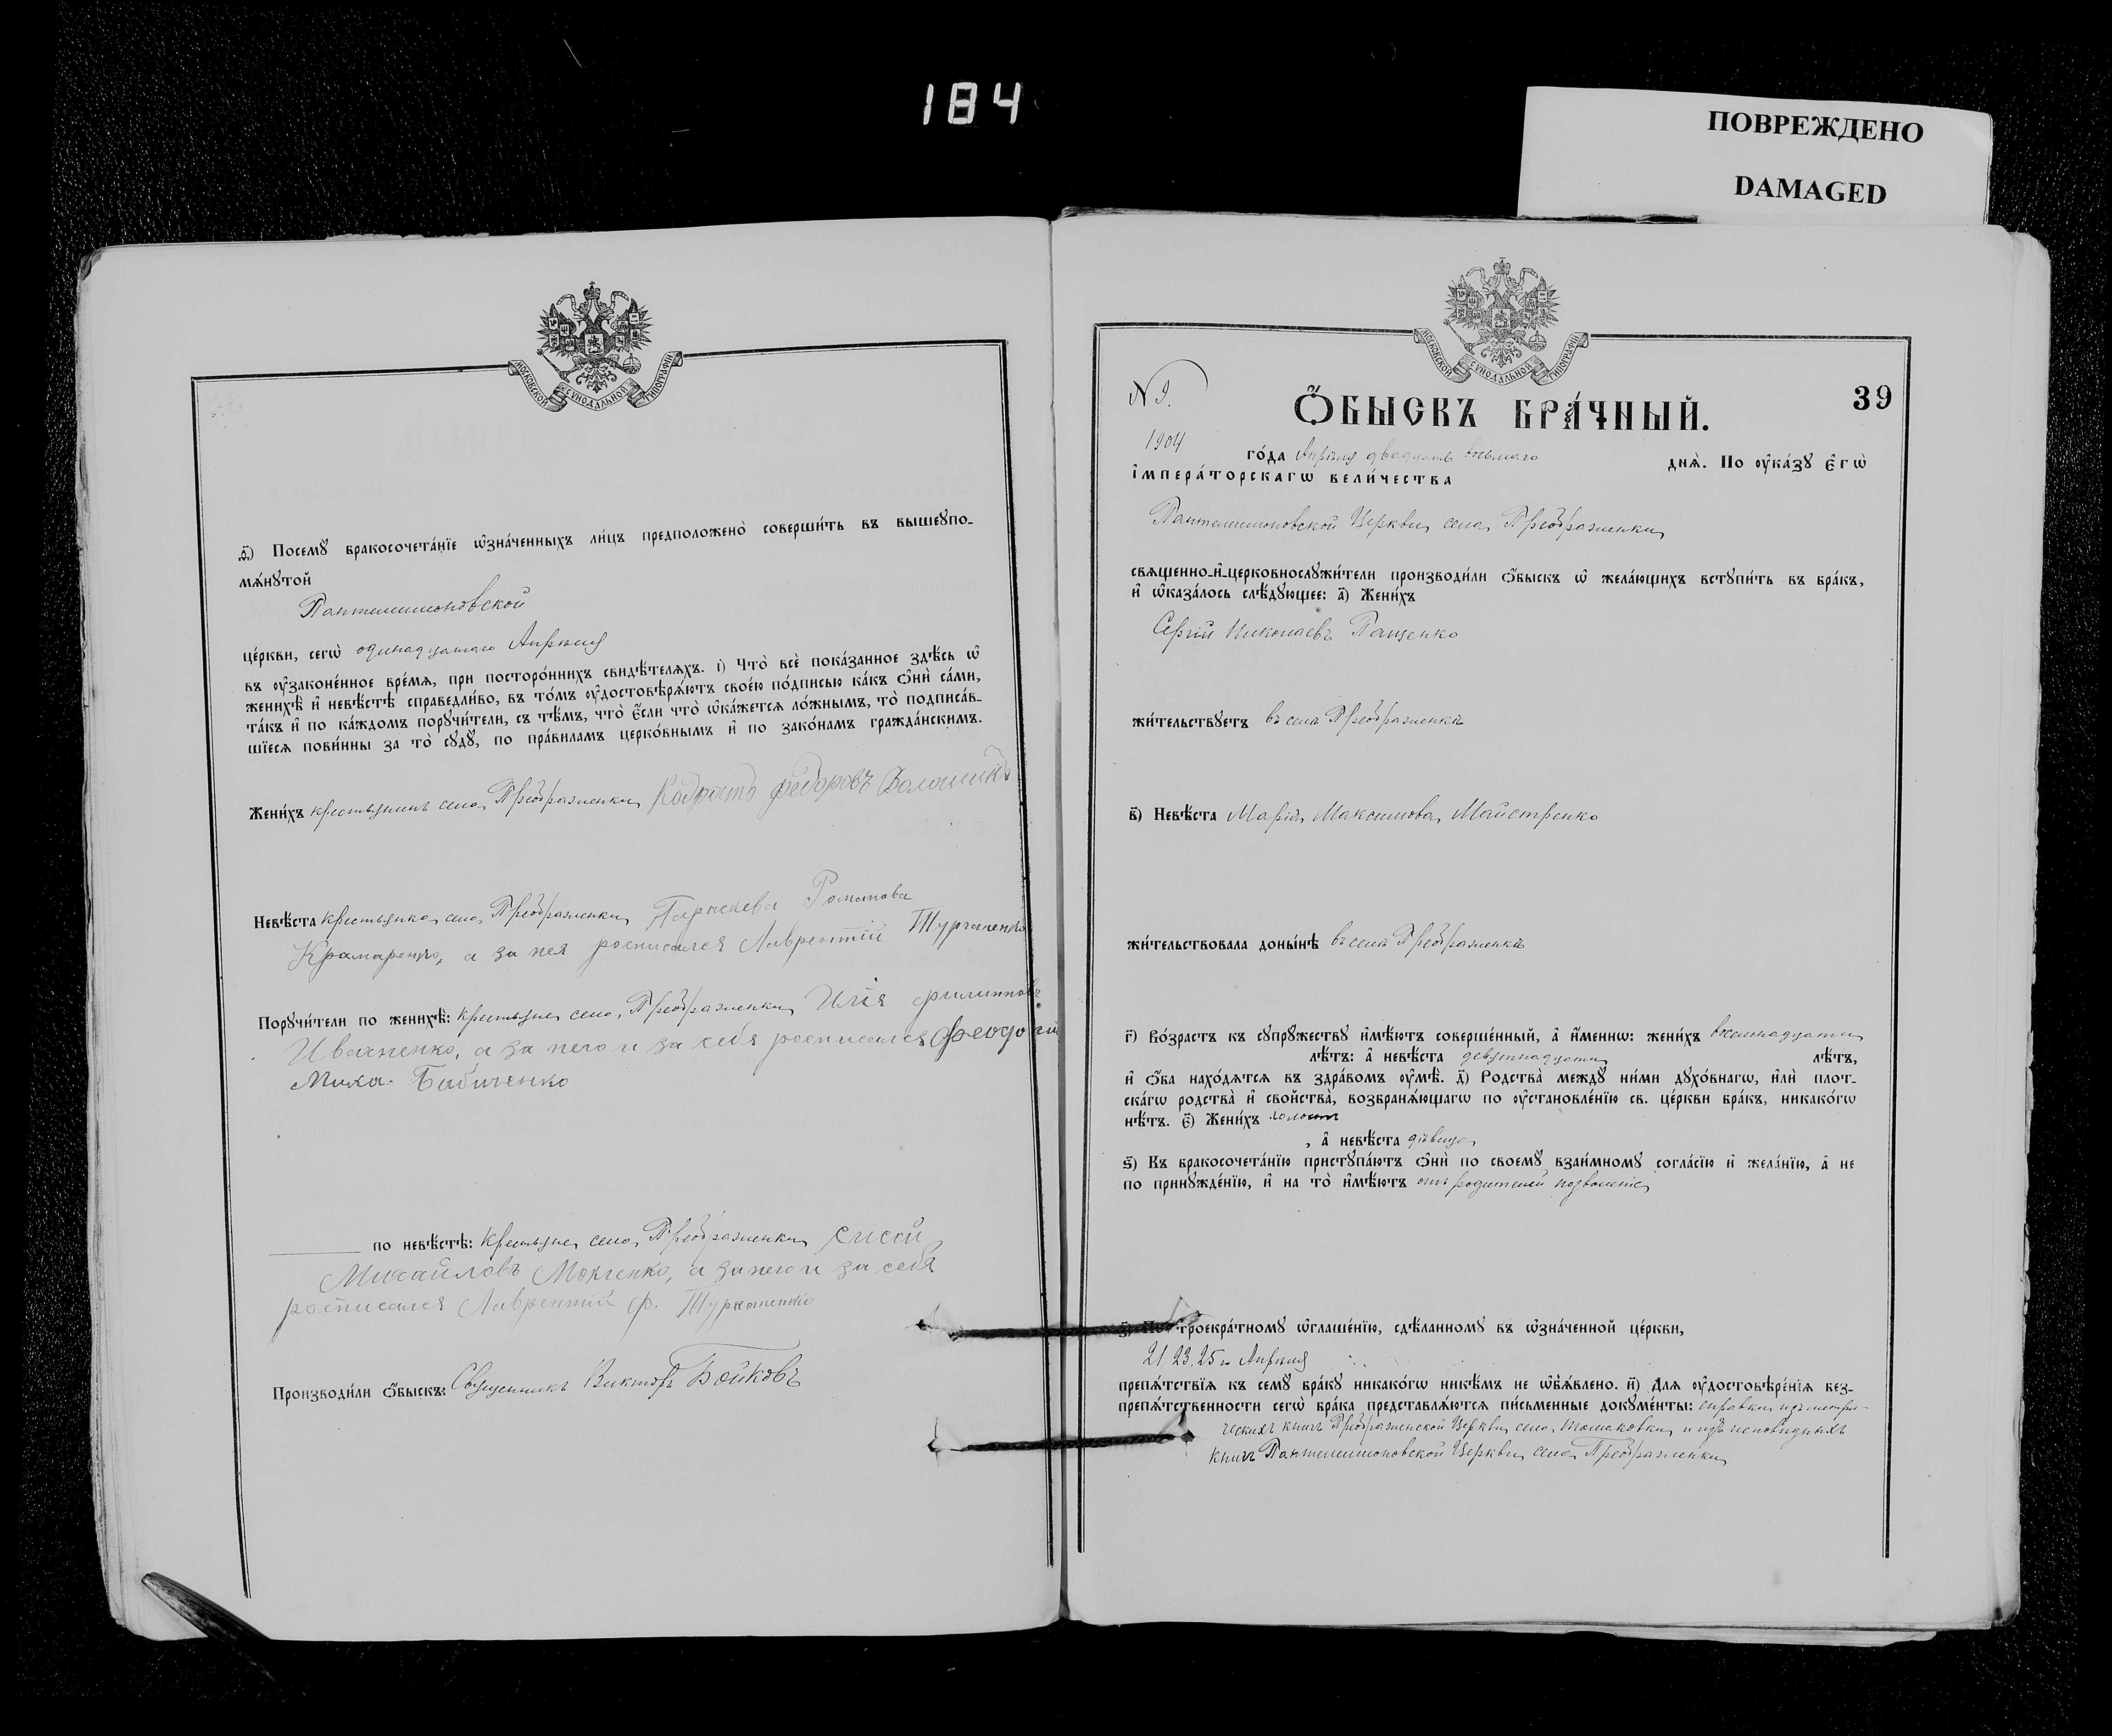 184
ПОВРЕЖДЕНО
DAMAGED
МОСКОВСКОЙ СѴНОДАЛЬНОЙ ТИПОГРАФІИ
ѳ҃) Посемꙋ̀ бракосочета́нїе ѡ҆зна́ченныхъ ли́цъ предположено̀ соверши́ть въ вышеꙋпо-
мѧ́нꙋтой
Пантелеимоновской
це́ркви, сегѡ̀ одинадцатаго Апрѣля
въ ᲂу҆законе́нное вре́мѧ, при посторо́ннихъ свидѣ́телѧхъ. і҃) Что̀ всѐ пока́занное здѣ́сь ѡ҆
женихѣ̀ и҆ невѣ́стѣ справедли́во, въ то́мъ ᲂу҆достовѣрѧ́ютъ свое́ю по́дписью ка́къ ѻ҆нѝ са́ми,
та́къ и҆ по ка́ждомъ порꙋчи́тели, съ тѣ́мъ, что̀ є҆́сли что̀ ѡ҆ка́жетсѧ ло́жнымъ, то̀ подписа́в-
шїесѧ пови́нны за то̀ сꙋдꙋ̀, по пра́виламъ церко́внымъ и҆ по зако́намъ гражда́нскимъ.
Жени́хъ крестьянинъ села Преображенки Кодратъ Федоровъ Волошинъ
Невѣ́ста крестьянка села Преображенки Параскева Романова
Крамаренко, а за нея росписался Лаврентій Турчаненко
Порꙋчи́тели по женихѣ̀: крестьяне села Преображенки Илія Филиповъ
Иваненко, а за него и за себя росписался Феодосій
Миха. Бабиченко
по невѣ́стѣ: крестьяне села Преображенки Елисей
Михайловъ Мокіенко, а за него и за себя
росписался Лаврентій Ф. Турчаненко
Производи́ли ѻ҆́быскъ: Священникъ Викторъ Бойковъ
МОСКОВСКОЙ СѴНОДАЛЬНОЙ ТИПОГРАФІИ
N 9.
39
Ѻ҆́БЫСКЪ БРА́ЧНЫЙ.
1904 го́да Апрѣля двадцать восьмаго днѧ̀. По ᲂу҆ка́зꙋ Є҆гѡ̀
І҆мпера́торскагѡ Вели́чества
Пантелеимоновской Церкви села Преображенки
свѧщенно-и҆-церковнослꙋжи́тели производи́ли ѻ҆́быскъ ѡ҆ жела́ющихъ встꙋпи́ть въ бра́къ,
и҆ ѡ҆каза́лось слѣ́дꙋющее: а҃) Жени́хъ
Сергій Николаевъ Пащенко
жи́тельствꙋетъ въ селѣ Преображенкѣ
в҃) Невѣ́ста Марія Максимова Майстренко
жи́тельствовала доны́нѣ въ селѣ Преображенкѣ
г҃) Во́зрастъ къ сꙋпрꙋ́жествꙋ и҆мѣ́ютъ соверше́нный, а҆ и҆́меннѡ: жени́хъ восемнадцати
лѣ́тъ: а҆ невѣ́ста девятнадцати лѣ́тъ,
и҆ ѻ҆́ба нахо́дѧтсѧ въ здра́вомъ ᲂу҆мѣ̀. д҃) Родства̀ междꙋ̀ ни́ми дꙋхо́внагѡ, и҆лѝ плот-
ска́гѡ родства̀ и҆ сво́йства̀, возбранѧ́ющагѡ по ᲂу҆становле́нїю св. це́ркви бра́къ, никако́гѡ
нѣ́тъ. є҃) Жени́хъ холостъ
, а҆ невѣ́ста дѣвица
ѕ҃) Къ бракосочета́нїю пристꙋпа́ютъ ѻ҆нѝ по своемꙋ̀ взаи́мномꙋ согла́сїю и҆ жела́нїю, а҆ не
по принꙋжде́нїю, и҆ на то̀ и҆мѣ́ютъ отъ родителей позволеніе
з҃) По троекра́тномꙋ ѡ҆глаше́нїю, сдѣ́ланномꙋ въ ѡ҆зна́ченной це́ркви,
21, 23, 25 го Апрѣля
препѧ́тствїѧ къ семꙋ̀ бра́кꙋ никако́гѡ никѣ́мъ не ѡ҆б̾ѧ́влено. и҃) Длѧ ᲂу҆достовѣре́нїѧ без-
препѧ́тственности сегѡ̀ бра́ка представлѧ́ютсѧ пи́сьменные докꙋме́нты: справки изъ метри-
ческихъ книгъ Преображенской Церкви села Томаковки и изъ исповѣдныхъ
книгъ Пантелеимоновской Церкви села Преображенки